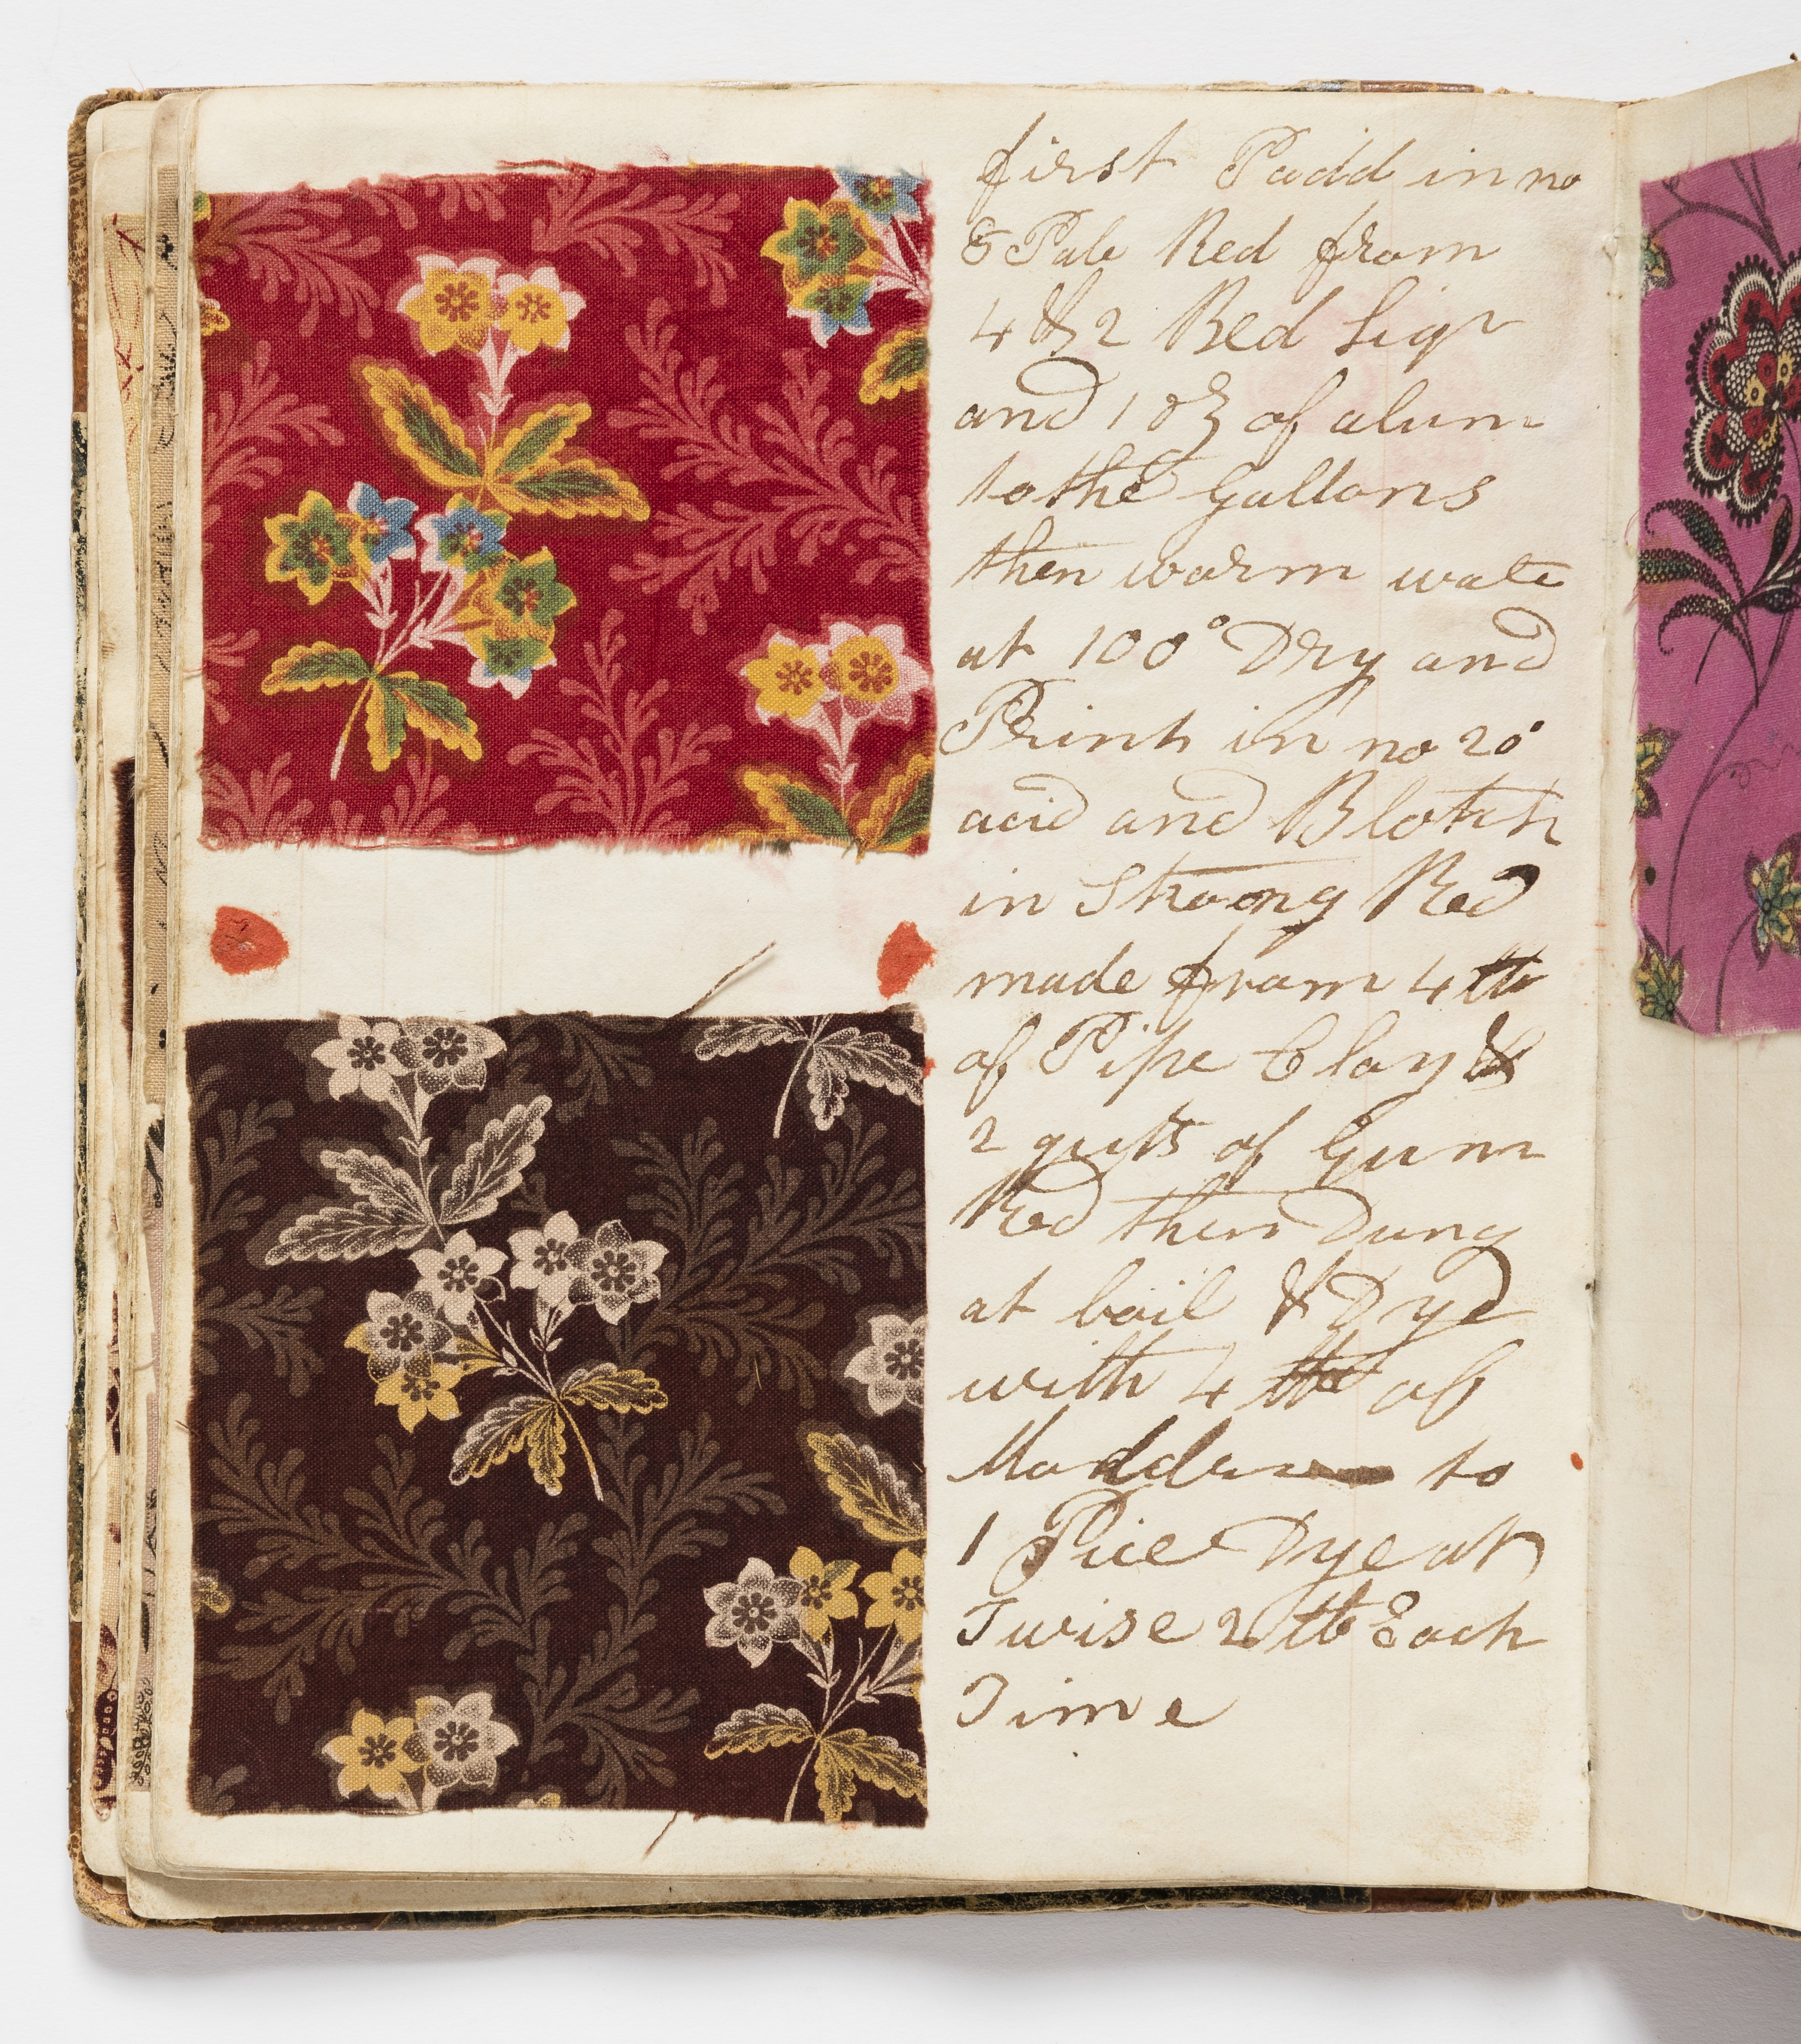 first Padd in no
5 Pale Red from
4 & 2 Red Liqr
and 1 oz of alum
to the Gallons
then warm wate
at 100° Dry and
Print in no 20
acid and Blotch
in Strong Red
made from 4 lb
of Pipe Clay &
2 qurts of Gum
Red then Dung
at boil & Dye
with 4 lb of
Madder to
1 Piece Dye at
Twise 2 lb Each
Time